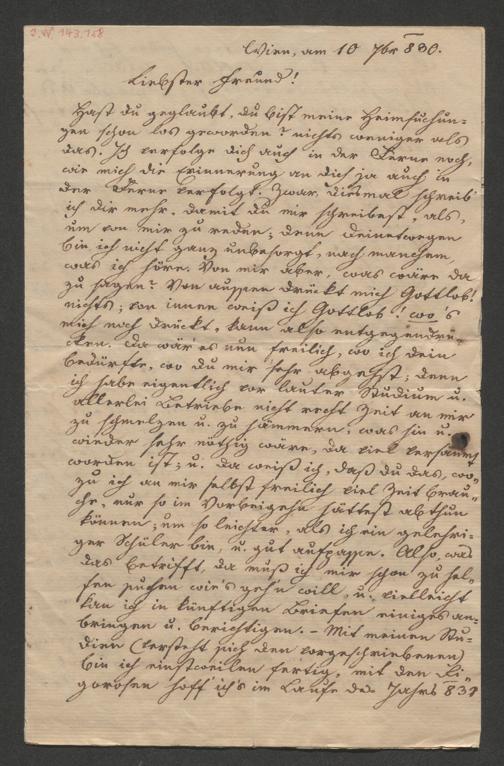 I. N. 143.128
Wien, am 10 7br 830.
Liebster Freund!
Hast du geglaubt, du bist meine Heimsuchun-
gen schon los geworden? nichts weniger als
das. Ich verfolge dich auch in der Ferne noch,
wie mich die Erinnerung an dich ja auch in
der Ferne verfolgt. Zwar, diesmal schreib'
ich dir mehr, damit du mir schreibest, als,
um von mir zu reden; denn deinetwegen
bin ich nicht ganz unbesorgt, nach manchem,
was ich höre. Von mir aber, was wäre da
zu sagen? Von aussen drückt mich Gottlob!
nichts; von innen weiß ich Gottlob! wo's
mich noch drückt, kann also entgegendrü-
cken. Da wär' es nun freilich, wo ich dein
bedürfte, wo du mir sehr abgehst; denn
ich habe eigentlich vor lauter Studium u.
allerlei Betriebe nicht recht Zeit an mir
zu schmelzen u. zu hämmern, was hin u.
wieder sehr nöthig wäre, da viel versäumt
worden ist; u. da weiß ich, daß du das, wo-
zu ich an mir selbst freilich viel Zeit brau-
che, nur so im Vorbeigehn hättest abthun
können, um so leichter, als ich ein gelehri-
ger Schüler bin, u. gut aufpasse. Also, was
das betrifft, da muß ich mir schon zu hel-
fen suchen wie's geh'n will, u. vielleicht
kan ich in künftigen Briefen einiges an-
bringen u. berichtigen. – Mit meinen Stu-
dien (versteht sich den vorgeschriebenen)
bin ich einstweilen fertig, mit den Ri-
gorosen hoff' ich's im Laufe des Jahrs 831